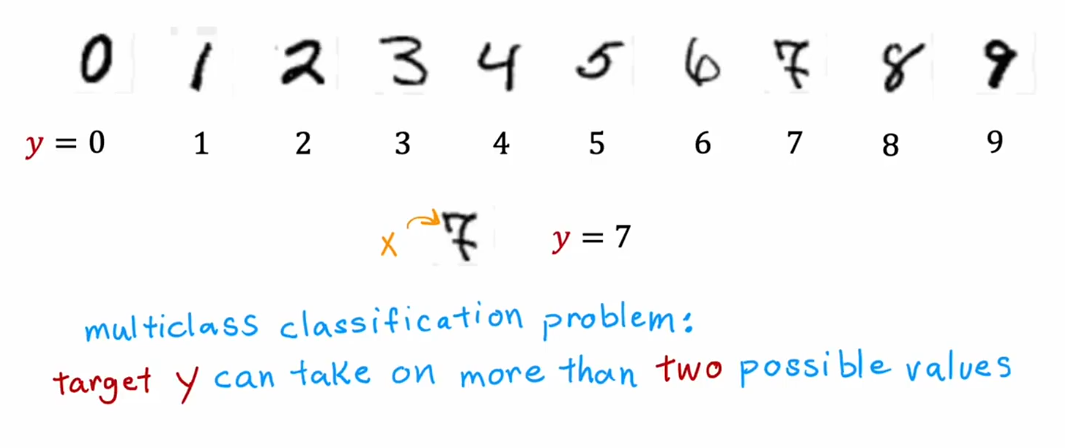 0 1 2 3 4 5 6 7 8 9
y = 0 1 2 3 4 5 6 7 8 9
x 7 y = 7
multiclass classification problem:
target y can take on more than two possible values